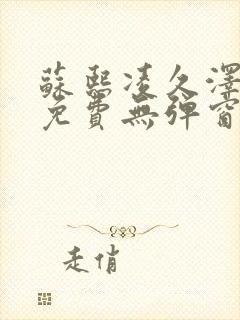 蘇熙凌久澤
免費無彈窗
走俏